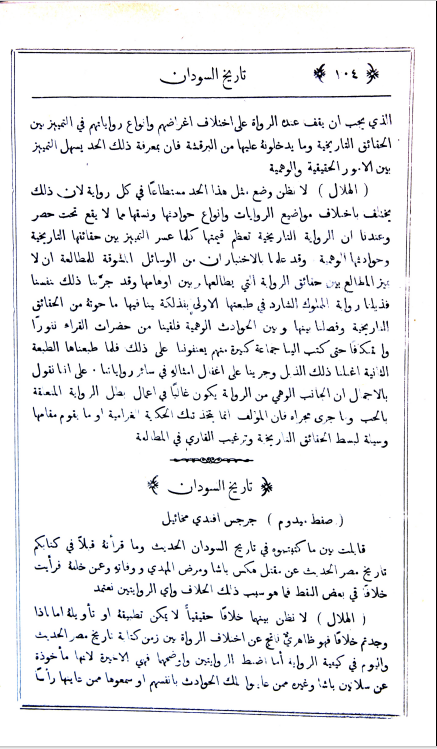 ﴿ ١٠٤ ﴾ تاريخ السودان
الذي يجب ان يقف عنده الرواة على اختلاف اغراضهم وانواع رواياتهم في التمييز بين
الحقائق التاريخية وما يدخلونه عليها من البرقشة فان بمعرفة ذلك الحد يسهل التمييز
بين الامور الحقيقية والوهمية
( الهلال ) لا نظن وضع مثل هذا الحد مستطاعًا في كل رواية لان ذلك
يختلف باختلاف مواضيع الروايات وانواع حوادثها ونسقها مما لا يقع تحت حصر
وعندنا ان الرواية التاريخية تعظم قيمتها كلما عسر التمييز بين حقائقها التاريخية
وحوادثها الوهمية وقد علمنا بالاختبار ان من الوسائل المشوقة للمطالعة ان لا
يميز المطالع بين حقائق الرواية التي يطالعها وبين اوهامها وقد جربنا ذلك بنفسنا
فذيلنا رواية المملوك الشارد في طبعتها الاولى بفذلكة بينا فيها ما حوته من الحقائق
التاريخية وفصلنا بينها وبين الحوادث الوهمية فلقينا من حضرات القراء نفورًا
واستنكافًا حتى كتب الينا جماعة كبيرة منهم يعنفوننا على ذلك فلما طبعناها الطبعة
الثانية اغفلنا ذلك الذيل وجرينا على اغفال امثاله في سائر رواياتنا . على اننا نقول
بالاجمال ان الجانب الوهمي من الرواية يكون غالبًا في اعمال بطل الرواية المتعلقة
بالحب وما جرى مجراه فان المؤلف انما يتخذ تلك الحكاية الغرامية او ما يقوم مقامها
وسيلة لبسط الحقائق التاريخية وترغيب القاري في المطالعة
﴿ تاريخ السودان ﴾
( صفط ميدوم ) جرجس افندي مخائيل
قابلت بين ما كتبتموه في تاريخ السودان الحديث وما قرأته قبلًا في كتابكم
تاريخ مصر الحديث عن مقتل هكس باشا ومرض المهدي ووفاته وعن خلفه فرأيت
خلافًا في بعض النقط فما هو سبب ذلك الخلاف واي الروايتين نعتمد
( الهلال ) لا نظن بينها خلافًا حقيقيًا لا يمكن تطبيقه او تأويله اما اذا
وجدتم خلافًا فهو ظاهريٌّ ناتج عن اختلاف الرواة بين زمن كتابة تاريخ مصر الحديث
واليوم في كيفية الرواية أما اضبط الروايتين واوضحها فهي الاخيرة لانها مأخوذة
عن سلاتين باشا وغيره ممن عاينوا تلك الحوادث بانفسهم او سمعوها ممن عاينها رأسًا